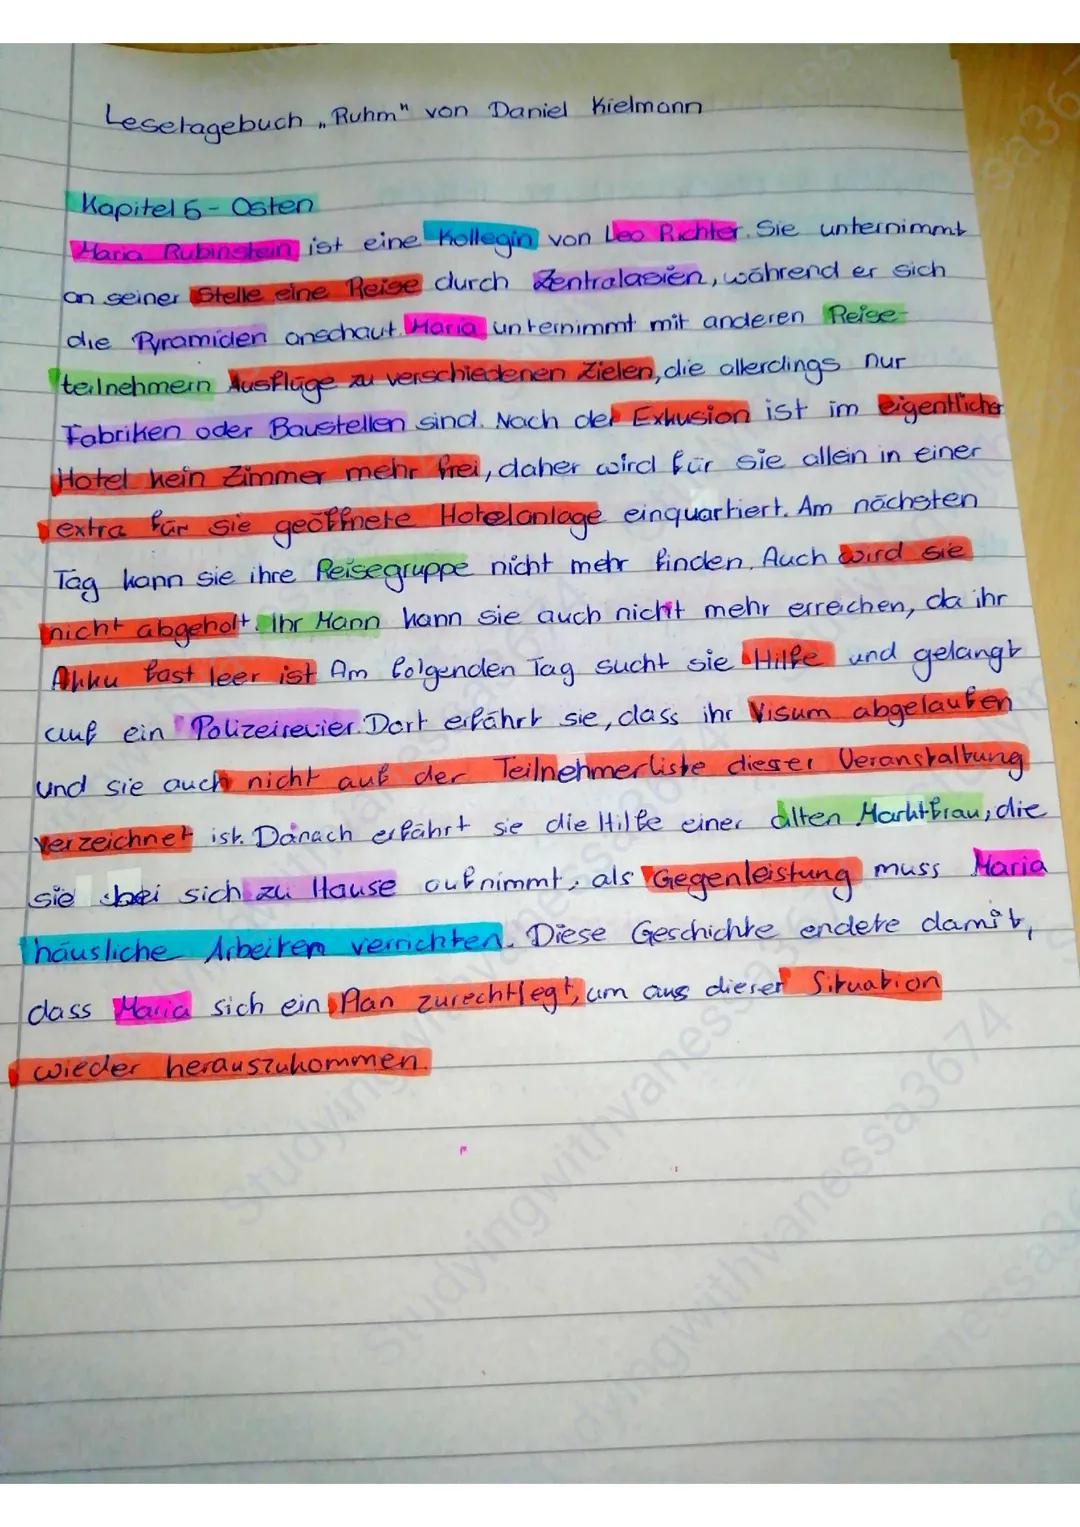 Lesetagebuch „Ruhm" von Daniel Kielmann
Kapitel 5 - Osten
Maria Rubinstein ist eine Kollegin von Leo Richter. Sie unternimmt
an seiner Stelle eine Reise durch Zentralasien, während er sich
die Pyramiden anschaut. Maria unternimmt mit anderen Reise-
teilnehmern Ausflüge zu verschiedenen Zielen, die allerdings nur
Fabriken oder Baustellen sind. Nach der Exkusion ist im eigentlichen
Hotel kein Zimmer mehr frei, daher wird für sie allein in einer
extra für sie geöffnete Hotelanlage einquartiert. Am nächsten
Tag kann sie ihre Reisegruppe nicht mehr finden. Auch wird sie
nicht abgeholt. Ihr Mann kann sie auch nicht mehr erreichen, da ihr
Akku fast leer ist Am folgenden Tag sucht sie Hilfe und gelangt
auf ein Polizeirevier. Dort erfährt sie, dass ihr Visum abgelaufen
und sie auch nicht auf der Teilnehmerliste dieser Veranstaltung
verzeichnet ist. Danach erfährt sie die Hilfe einer alten Marktfrau, die
sie bei sich zu Hause aufnimmt, als Gegenleistung muss Maria
häusliche Arbeiten verrichten. Diese Geschichte endete damit,
dass Maria sich ein Plan zurechtlegt, um aus dieser Situation
wieder herauszukommen.
Studyingwithvanessa3674